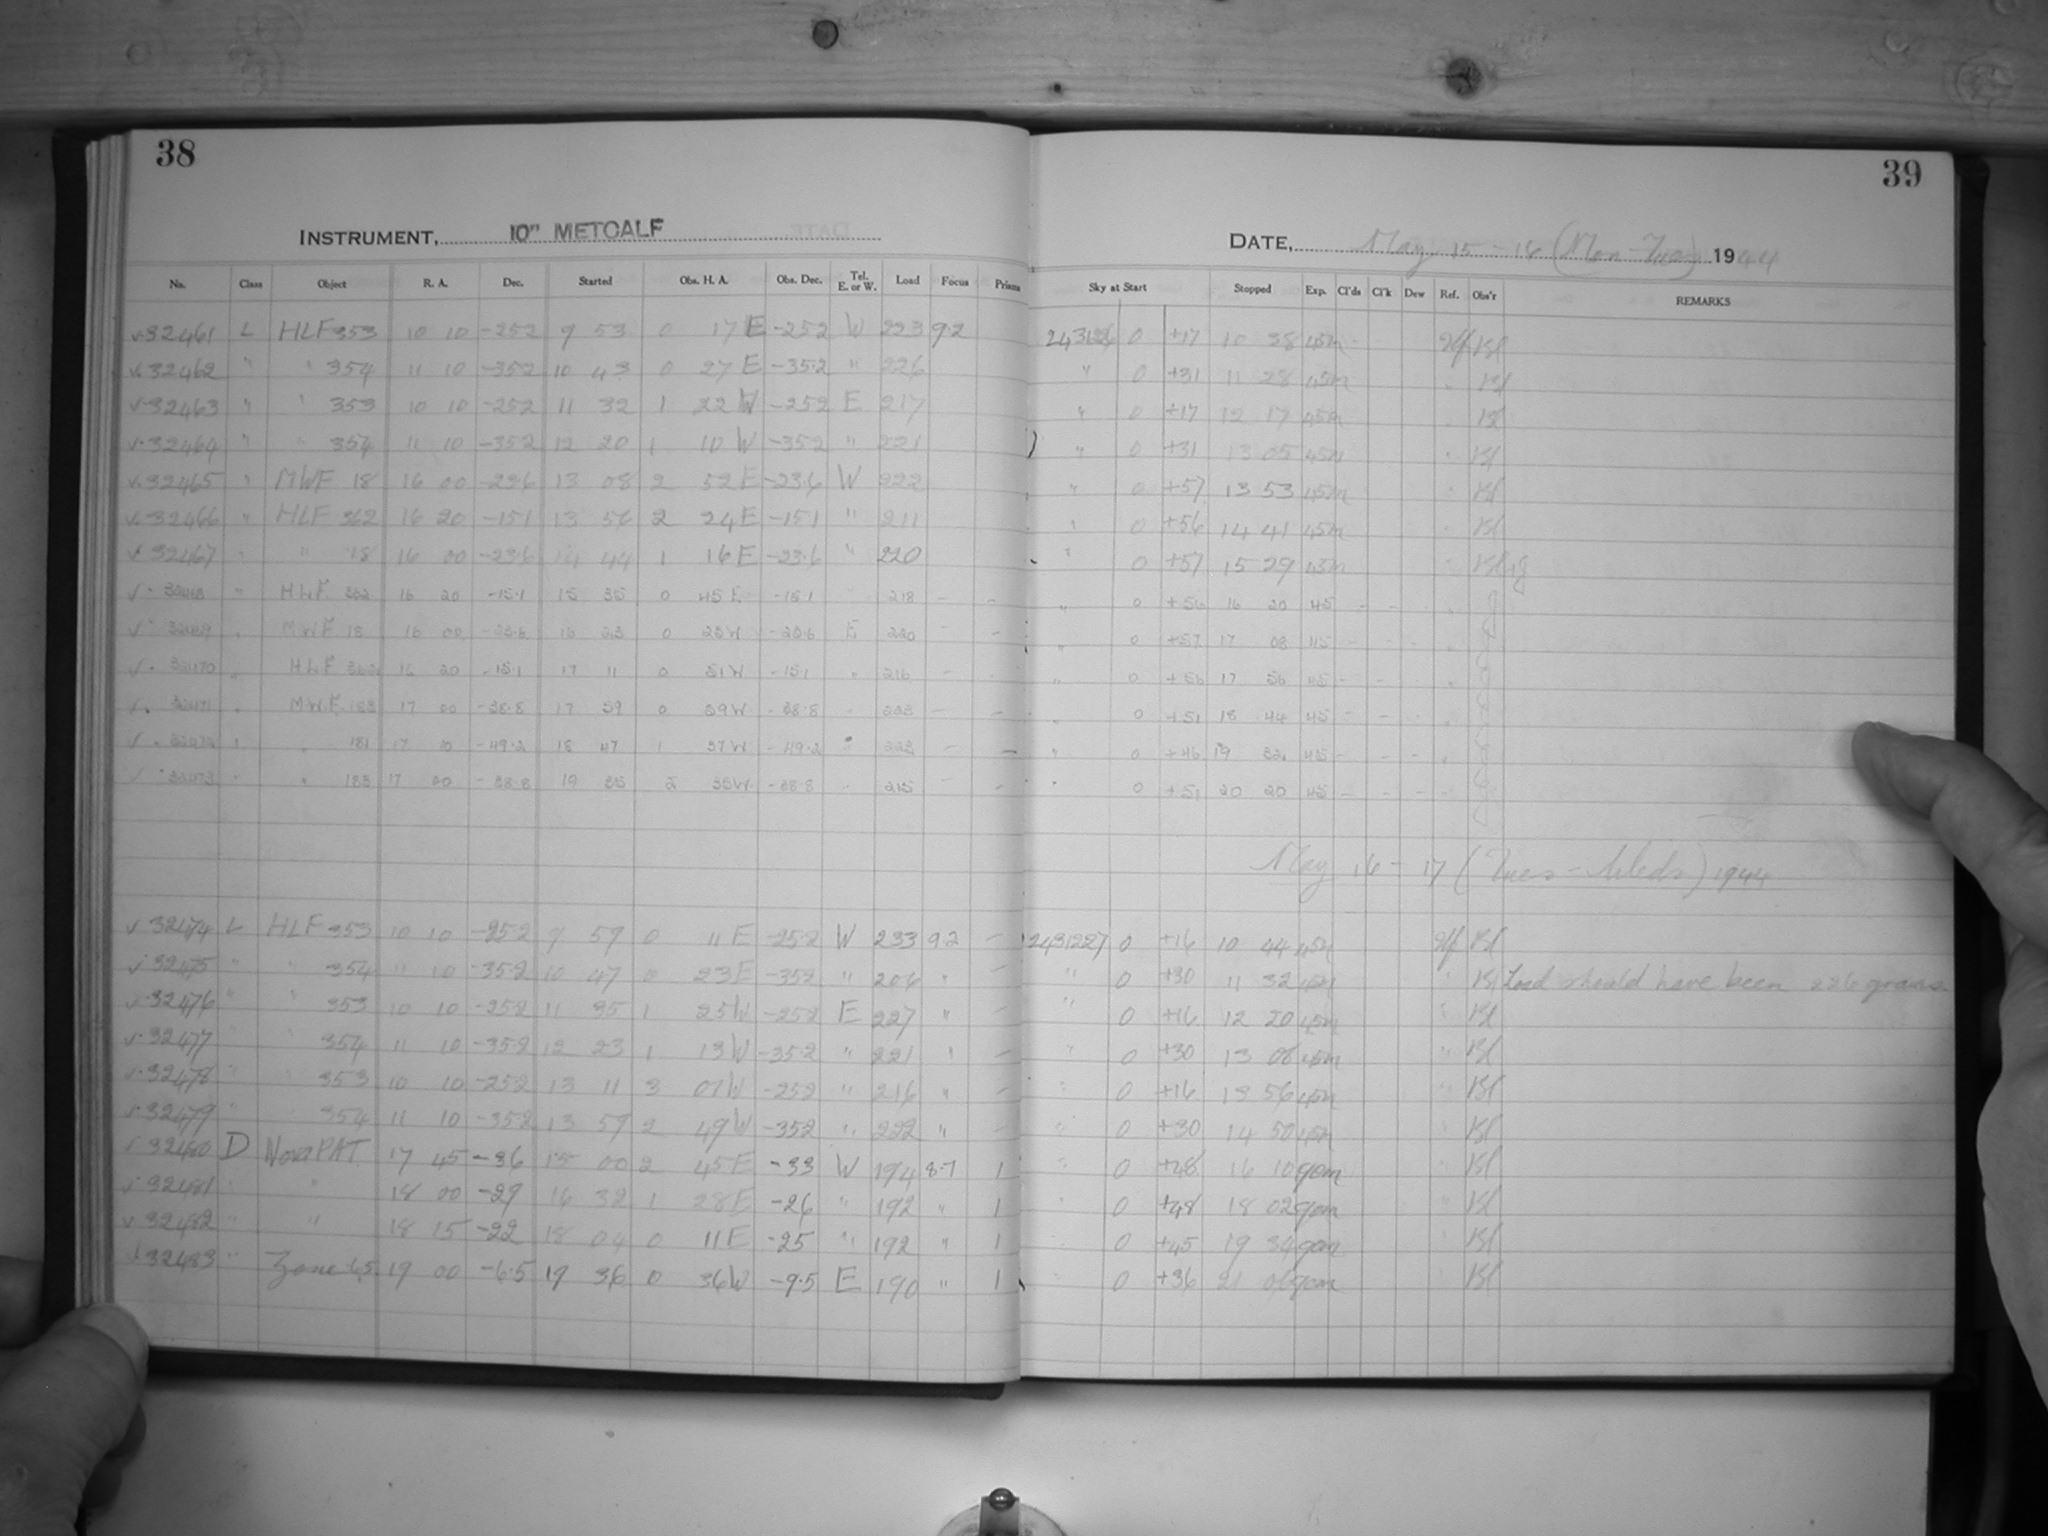 38
INSTRUMENT, 10" METCALF
No. Class Object R. A. Dec. Started Obs. H. A. Obs. Dec. Tel. E. or W. Load Focus Prisms
√32461 L HLF 353 10 10 -25.2 9 53 0 17 E -25.2 W 223 9.2
√32462 " " 354 11 10 -35.2 10 43 0 27 E -35.2 " 226
√32463 " " 353 10 10 -25.2 11 32 1 22 W -25.2 E 217
√32464 " " 354 11 10 -35.2 12 20 1 10 W -35.2 " 221
√32465 " MWF 18 16 00 -23.6 13 08 2 52 E -23.6 W 222
√32466 " HLF 362 16 20 -15.1 13 56 2 24 E -15.1 " 211
√32467 " " 18 16 00 -23.6 14 44 1 16 E -23.6 " 220
√32468 " HLF 362 16 20 -15.1 15 35 0 45 E -15.1 218 - -
√32469 " MWF 18 16 00 -23.6 16 23 0 25 W -23.6 E 220 - -
√32470 " HLF 362 16 20 -15.1 17 11 0 51 W -15.1 " 216 -
√32471 " MWF 183 17 00 -38.8 17 59 0 59 W -38.8 - -
√32472 " " 181 17 -49.2 18 47 1 37 W -49.2 " 223 - -
√32473 " " 183 17 00 -38.8 19 35 2 35 W -38.8 215 - -
√32474 L HLF 353 10 10 -25.2 9 59 0 11 E -25.2 W 233 9.2 -
√32475 " " 354 11 10 -35.2 10 47 0 23 E -35.2 " 206 " -
√32476 " " 353 10 10 -25.2 11 35 1 25 W -25.2 E 227 " -
√32477 " " 354 11 10 -35.2 12 23 1 13 W -35.2 " 221 " -
√32478 " " 353 10 10 -25.2 13 11 3 01 W -25.2 " 216 " -
√32479 " " 354 11 10 -35.2 13 59 2 49 W -35.2 " 222 " -
√32480 D Nova PAT 17 45 -36 15 00 2 45 E -33 W 194 8.7 1
√32481 " " 18 00 -29 16 32 1 28 E -26 " 192 " 1
√32482 " " 18 15 -22 18 04 0 11 E -25 " 192 " 1
√32483 " Zone 65 19 00 -6.5 19 36 0 36 W -9.5 E 190 " 1
39
DATE, May 15 - 16 (Mon - Tues) 1944
Sky at Start Stopped Exp. Cl'ds Cl'k Dew Ref. Obs'r REMARKS
2431226 0 +17 10 38 45m Bl
" 0 +31 11 28 45m Bl
" 0 +17 12 17 45m Bl
" 0 +31 13 05 45m Bl
" 0 +57 13 53 45m Bl
" 0 +56 14 41 45m Bl
" 0 +57 15 29 45m
" 0 +56 16 20 45 - - -
" 0 +57 17 08 45 - - -
" 0 +56 17 56 45 - - -
" 0 +51 18 44 45 - - -
" 0 +46 19 32 45 - - -
" 0 +51 20 20 45 - - -
May 16 - 17 (Tues - Weds) 1944
2431227 0 +16 10 44 45m Bl
" 0 +30 11 32 45m " Bl Load should have been 226 grams
" 0 +16 12 20 45m " Bl
" 0 +30 13 08 45m " Bl
" 0 +16 13 56 45m " Bl
" 0 +30 14 50 45m " Bl
" 0 +48 16 10 90m " Bl
" 0 +48 18 02 90m " Bl
" 0 +45 19 34 90m " Bl
" 0 +36 21 06 90m " Bl